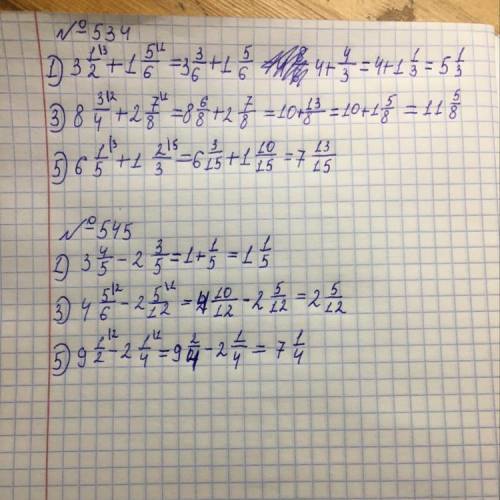 №534
1) 3 1/2 |3 + 1 5/6 |1 = 3 3/6 + 1 5/6 4 + 4/3 = 4 + 1 1/3 = 5 1/3
3) 8 3/4 |2 + 2 7/8 |1 = 8 6/8 + 2 7/8 = 10 + 13/8 = 10 + 1 5/8 = 11 5/8
5) 6 1/5 |3 + 1 2/3 |5 = 6 3/15 + 1 10/15 = 7 13/15
№545
1) 3 4/5 - 2 3/5 = 1 + 1/5 = 1 1/5
3) 4 5/6 |2 - 2 5/12 |1 = 4 10/12 - 2 5/12 = 2 5/12
5) 9 1/2 |2 - 2 1/4 |1 = 9 2/4 - 2 1/4 = 7 1/4